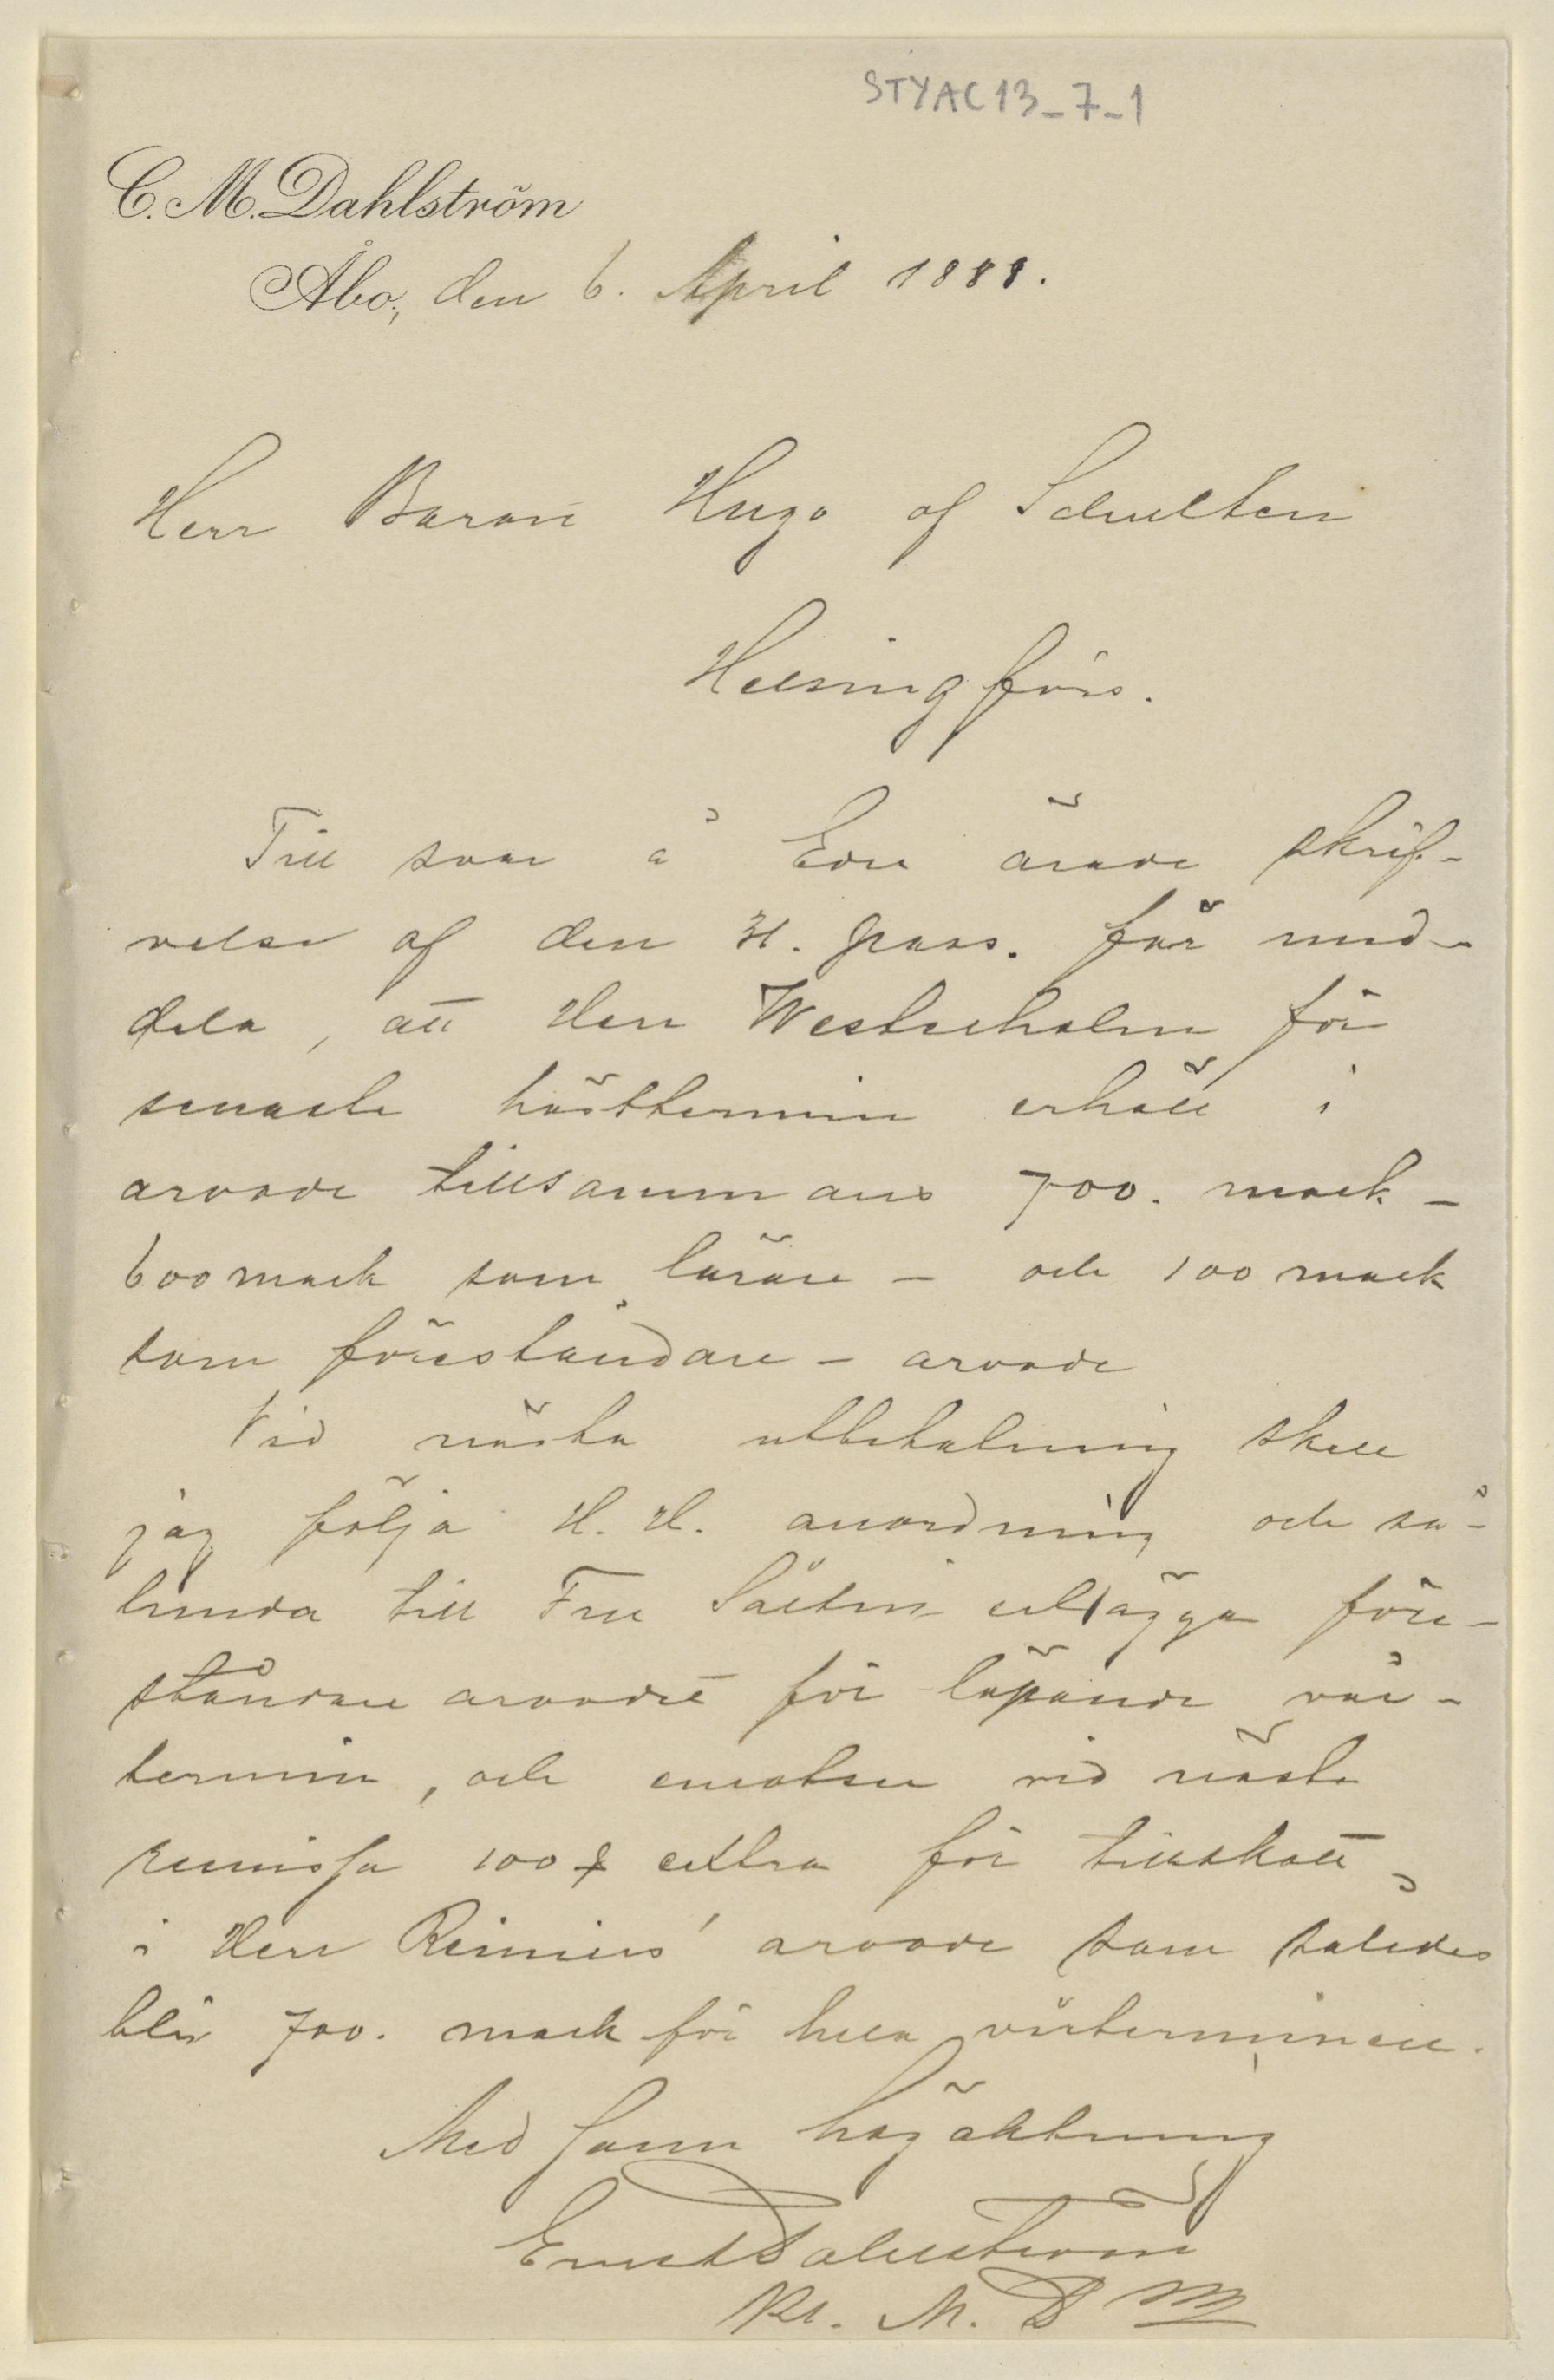 STYAC13_7_1
C. M. Dahlström
Åbo, den 6. April 1888.
Herr Baron Hugo af Schultén
Helsingfors.
Till svar å Edra ärade skrif-
velse af den 31. pass. får med-
dela, att Herr Westerholm för
senaste hösttermin erhöll i
arvode tillsammans 700. mark –
600 mark som lärare – och 100 mark
som föreståndare – arvode
Vid nästa utbetalning skall
jag följa H. H. anordning och så-
lunda till Fru Sältin erlägga före-
ståndare arvodet för löpande vår-
termin, och emotser vid nästa
remissa 100 extra för tillskott
i Herr Reiniers' arvode som således
blir 700. mark för hela vårterminen.
Med sann högaktning
Ernst Dahlström